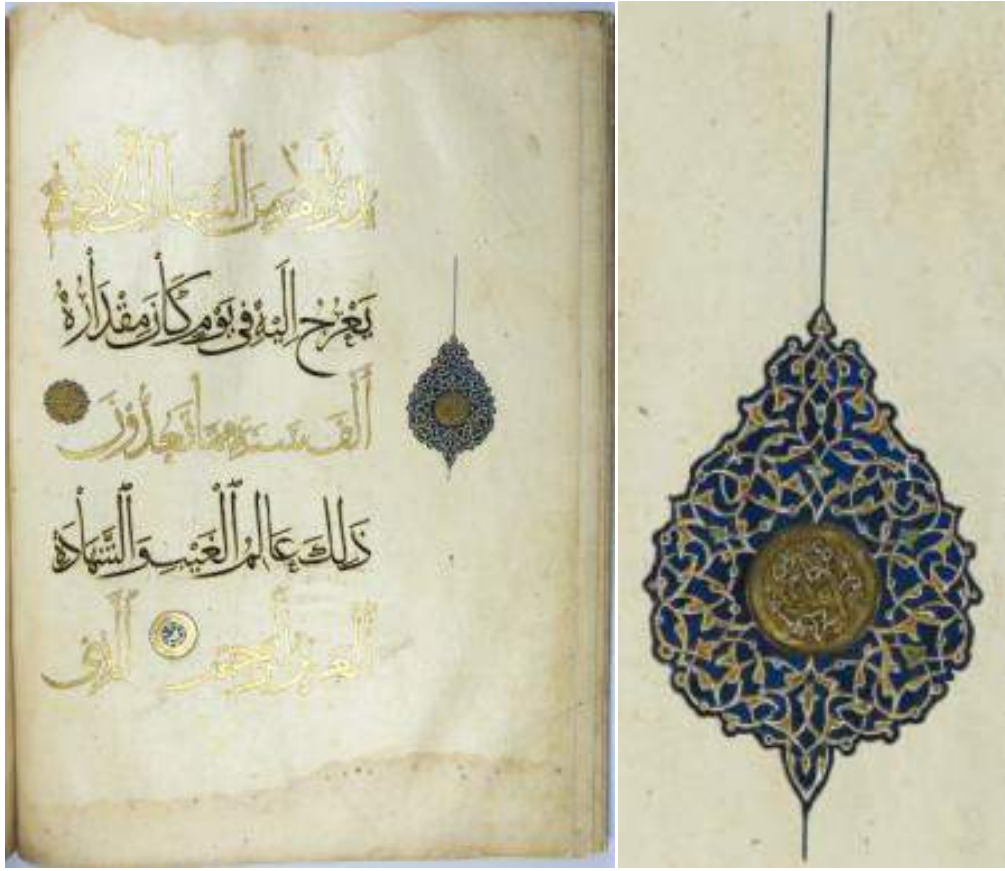 يُدَبِّرُ الْأَمْرَ مِنَ السَّمَاءِ إِلَى الْأَرْضِ ثُمَّ
يَعْرُجُ إِلَيْهِ فِي يَوْمٍ كَانَ مِقْدَارُهُ
أَلْفَ سَنَةٍ مِمَّا تَعُدُّونَ
ذَلِكَ عَالِمُ الْغَيْبِ وَالشَّهَادَةِ
الْعَزِيزُ الرَّحِيمُ الَّذِي